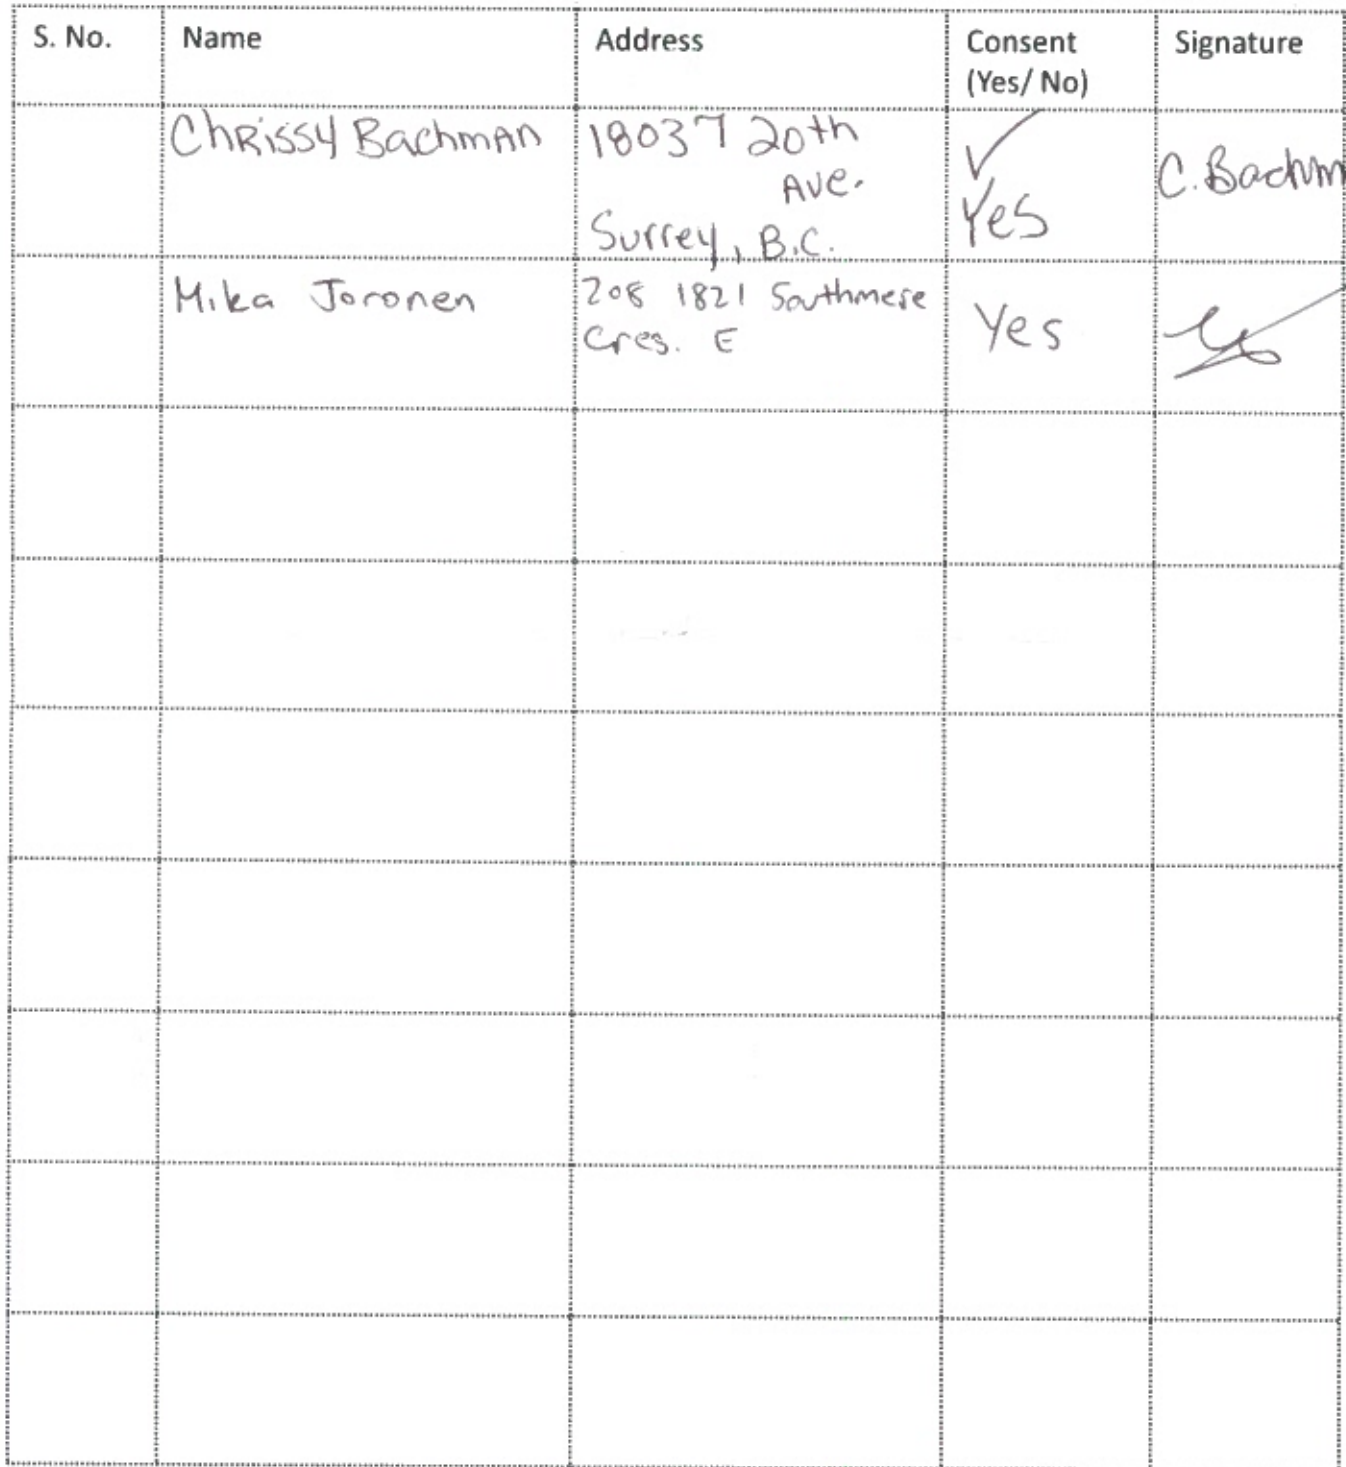 S. No. Name Address Consent Signature
(Yes/ No)
Chrissy Bachman 18037 20th
Ave.
Surrey, B.C.
Yes
C. Bachm
Mika Joronen 208 1821 Southmere
Cres. E
Yes